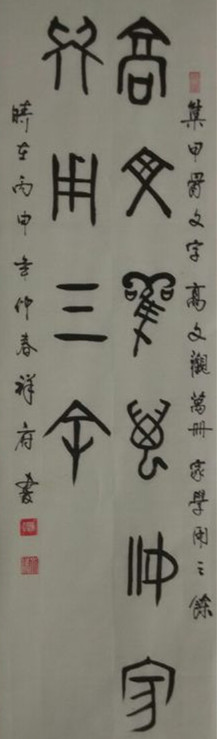 集甲骨文字 高文觀萬冊 家學用三餘
高文觀萬冊家
學用三余
時在丙申年仲春祥府書